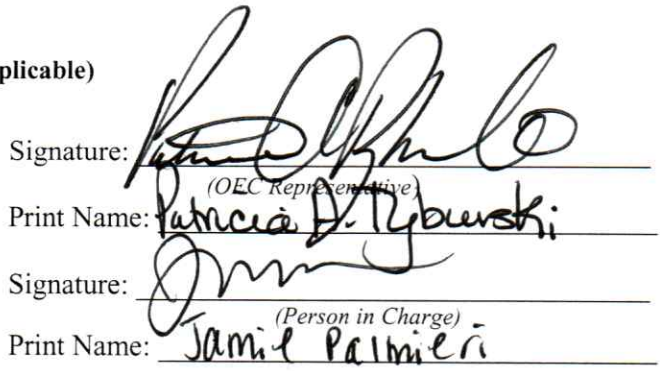 plicable)
Signature:
(OEC Representative)
Print Name: Patricia A. Tyburski
Signature:
(Person in Charge)
Print Name: Jamie Palmieri